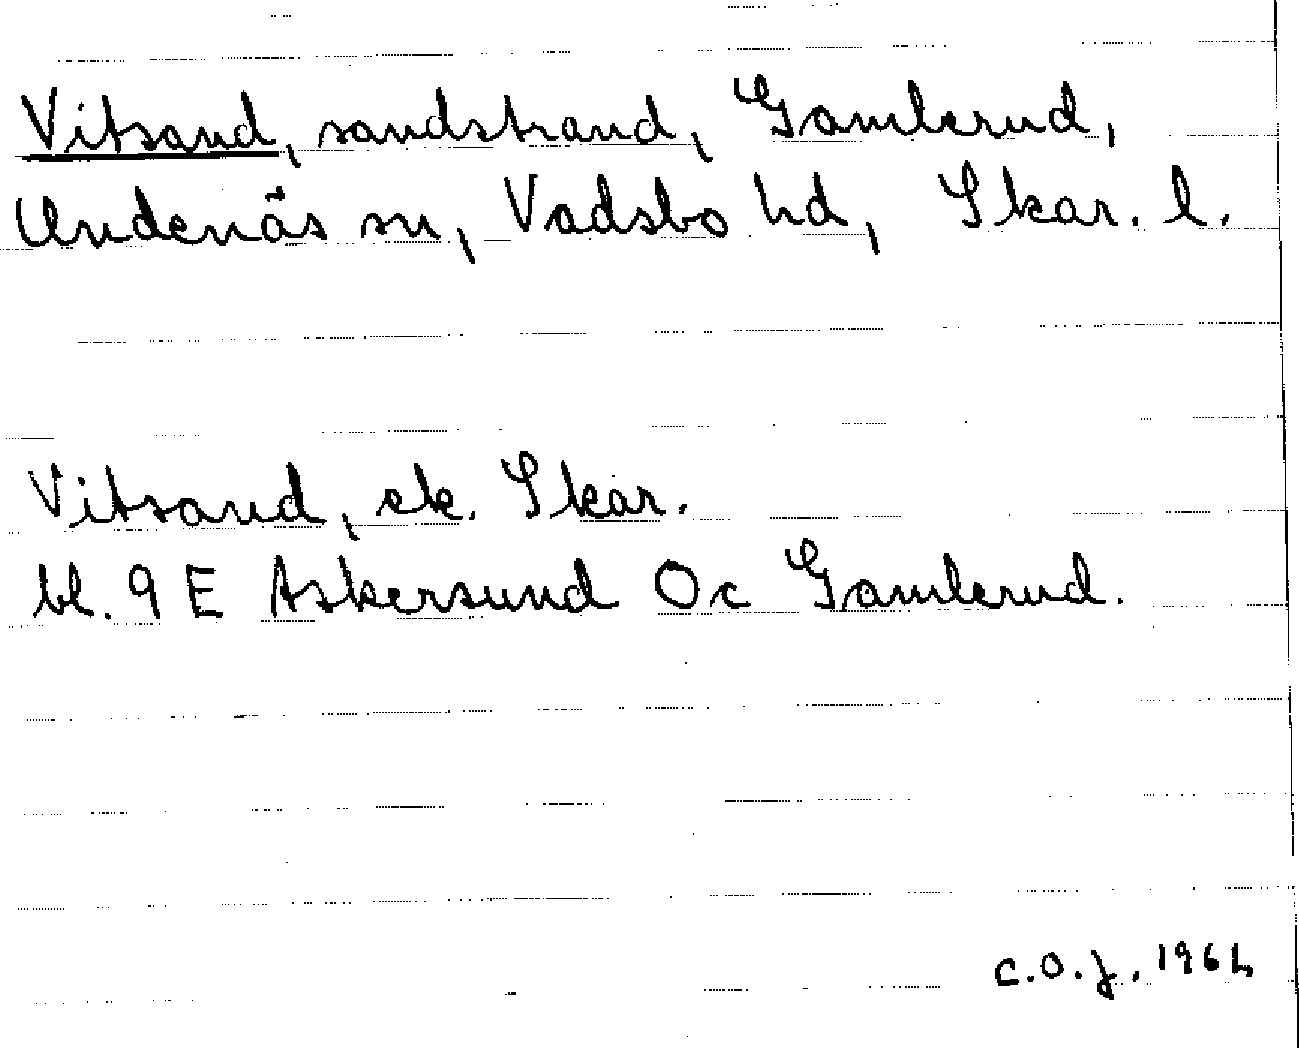 Vitsand, sandstrand, Gamlerud,
Undenäs sn, Vadsbo hd, Skar. l.
Vitsand, ek. Skar.
bl. 9 E Askersund Oc Gamlerud.
C.O.J. 1964